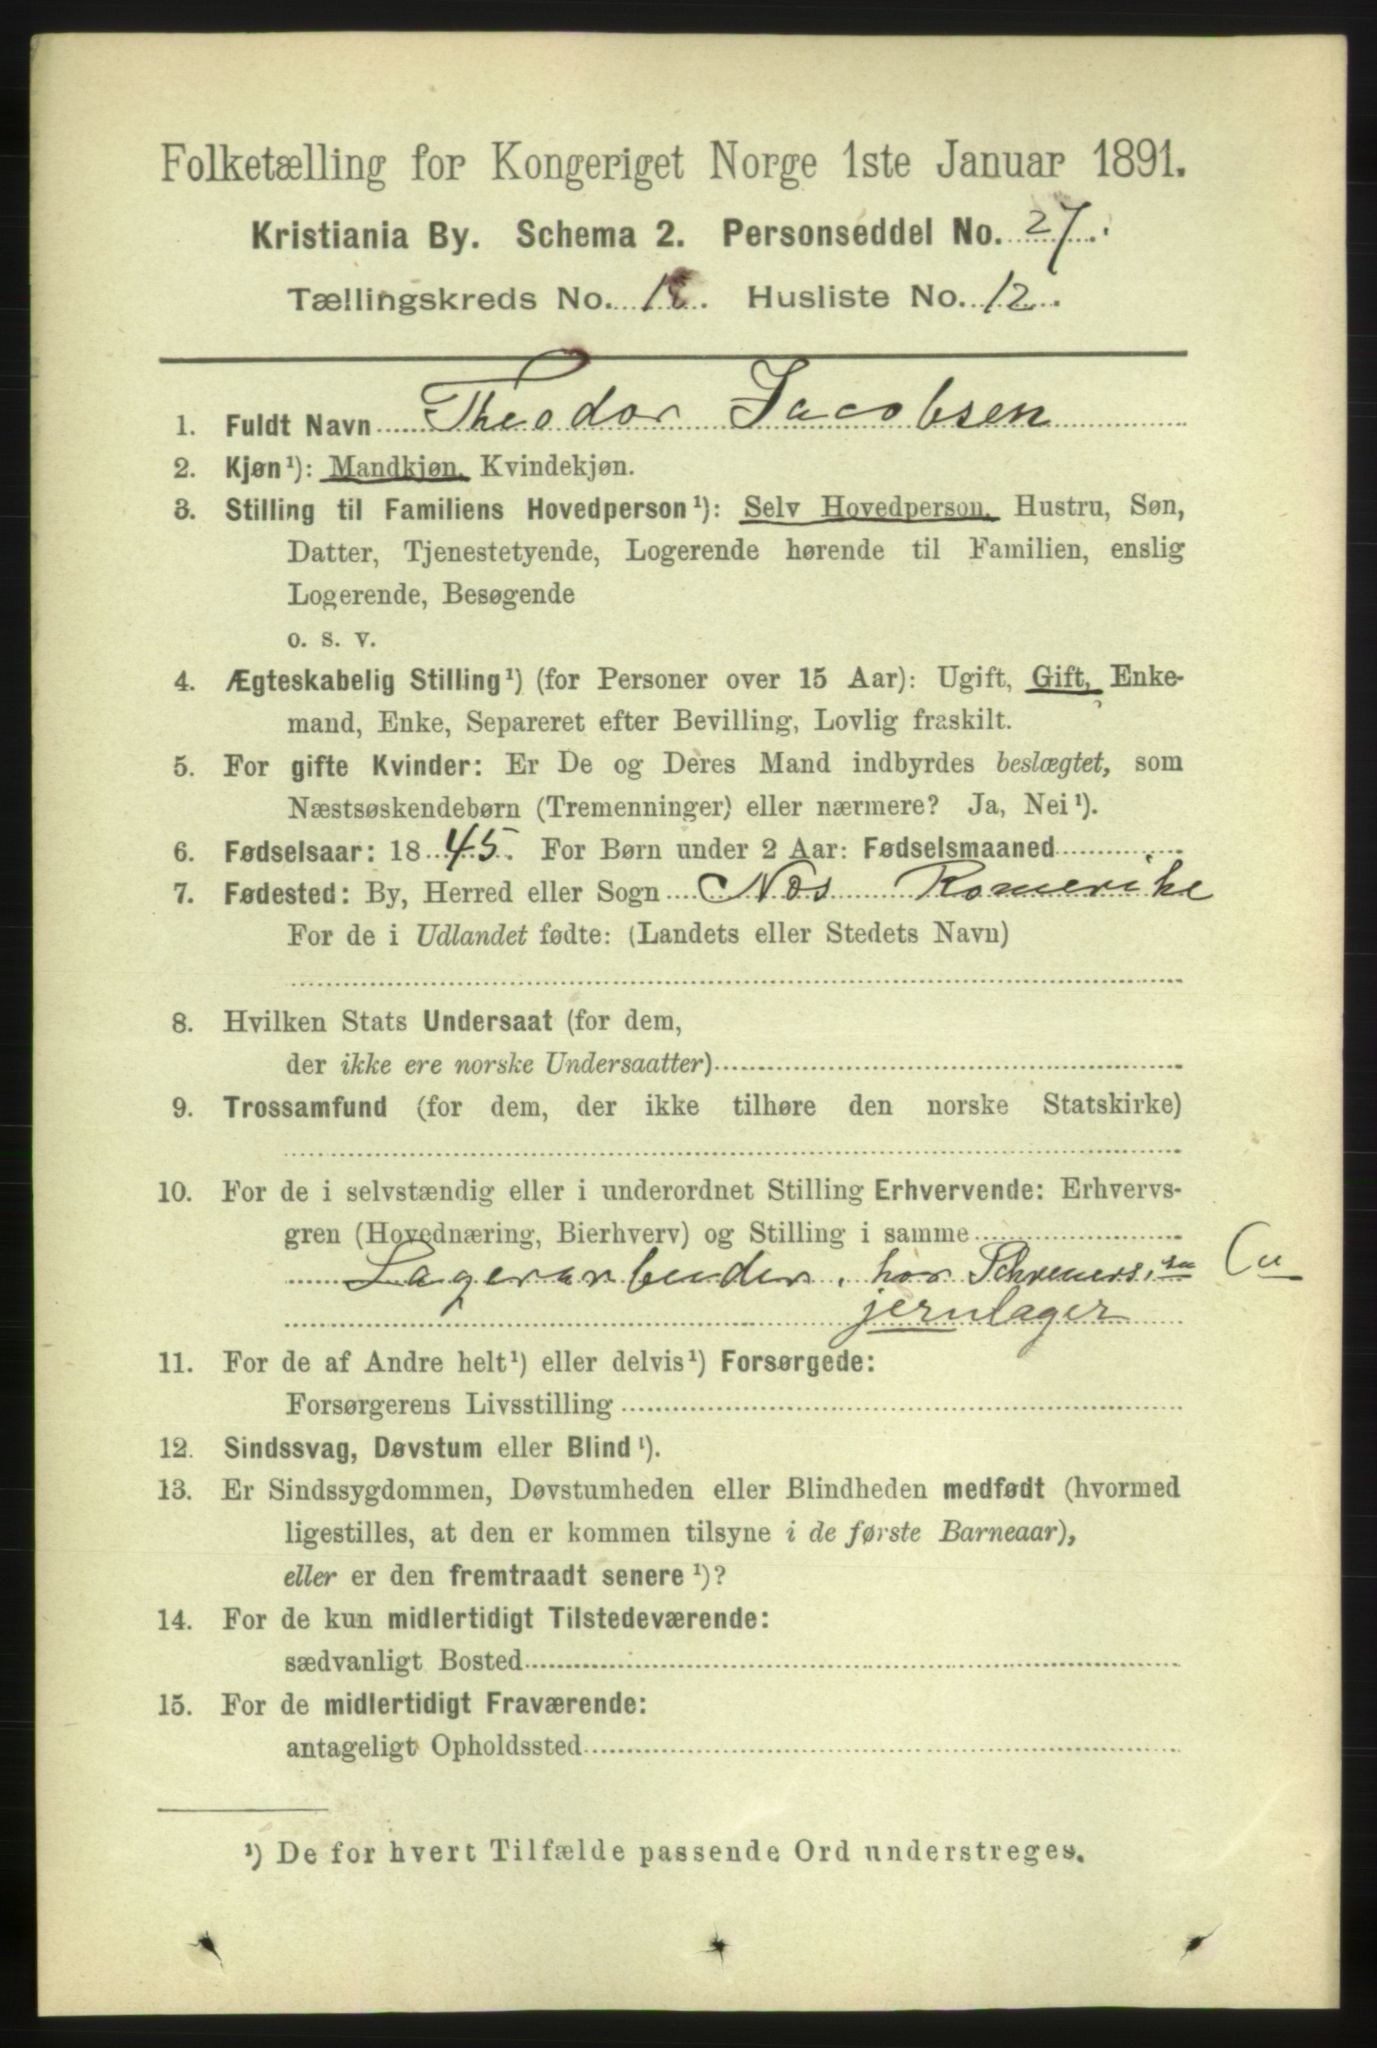 Folketælling for Kongeriget Norge 1ste Januar 1891.
Kristiania By. Schema 2. Personseddel No. 27.
Tællingskreds No. 18. Husliste No. 12.
1. Fuldt Navn Theodor Jacobsen
2. Kjøn¹): Mandkjøn, Kvindekjøn.
3. Stilling til Familiens Hovedperson¹): Selv Hovedperson, Hustru, Søn,
Datter, Tjenestetyende, Logerende hørende til Familien, enslig
Logerende, Besøgende
o. s. v.
4. Ægteskabelig Stilling¹) (for Personer over 15 Aar): Ugift, Gift, Enke-
mand, Enke, Separeret efter Bevilling, Lovlig fraskilt.
5. For gifte Kvinder: Er De og Deres Mand indbyrdes beslægtet, som
Næstsøskendebørn (Tremenninger) eller nærmere? Ja, Nei¹).
6. Fødselsaar: 1845. For Børn under 2 Aar: Fødselsmaaned
7. Fødested: By, Herred eller Sogn Næs Romerike
For de i Udlandet fødte: (Landets eller Stedets Navn)
8. Hvilken Stats Undersaat (for dem,
der ikke ere norske Undersaatter)
9. Trossamfund (for dem, der ikke tilhøre den norske Statskirke)
10. For de i selvstændig eller i underordnet Stilling Erhvervende: Erhvervs-
gren (Hovednæring, Bierhverv) og Stilling i samme
Lagerarbeider, hos
jernlager
11. For de af Andre helt¹) eller delvis¹) Forsørgede:
Forsørgerens Livsstilling
12. Sindssvag, Døvstum eller Blind¹).
13. Er Sindssygdommen, Døvstumheden eller Blindheden medfødt (hvormed
ligestilles, at den er kommen tilsyne i de første Barneaar),
eller er den fremtraadt senere¹)?
14. For de kun midlertidigt Tilstedeværende:
sædvanligt Bosted
15. For de midlertidigt Fraværende:
antageligt Opholdssted
¹) De for hvert Tilfælde passende Ord understreges.